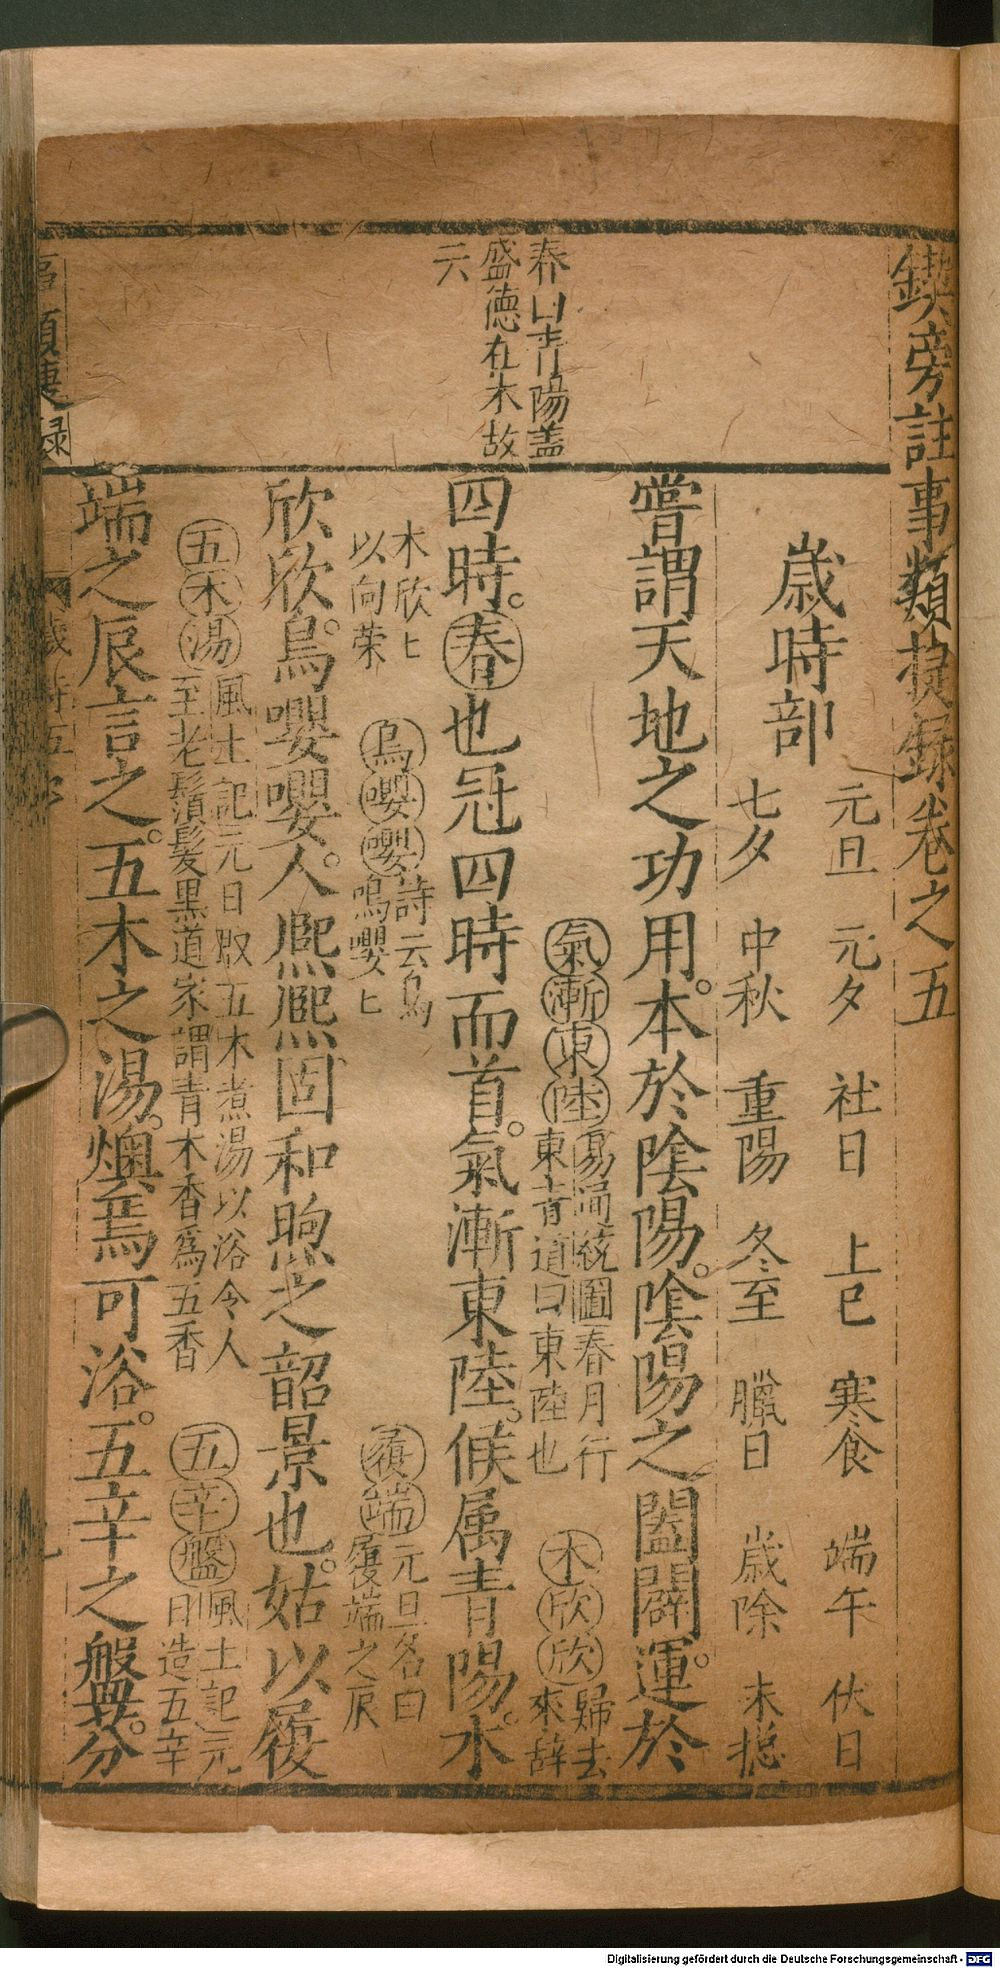 鍥旁註事類捷錄卷之五
歲時部
元旦 元夕 社日 上巳 寒食 端午 伏日
七夕 中秋 重陽 冬至 臘日 歲除 末搃
嘗謂天地之功用。本於陰陽。陰陽之闔闢運。於
氣漸東陸 易通統圖春月行
東青道曰東陸也
木欣欣 歸去
來辞
春曰青陽盖
盛德在木故
云
四時。春也冠四時而首。氣漸東陸。候属青陽。木
木欣匕
以向荣
鳥嚶嚶 詩云鳥
鳴嚶匕
履端 元旦名曰
履端之辰
欣欣。鳥嚶嚶。人熈熈固和煦之韶景也。姑以履
五木湯 風土記元日取五木煮湯以浴令人
至老鬚髮黒道家謂青木香爲五香
五辛盤 風土記元
日造五辛
端之辰言之。五木之湯。燠焉可浴。五辛之盤。芬
事類捷録
歲時五卷
Digitalisierung gefördert durch die Deutsche Forschungsgemeinschaft - DFG